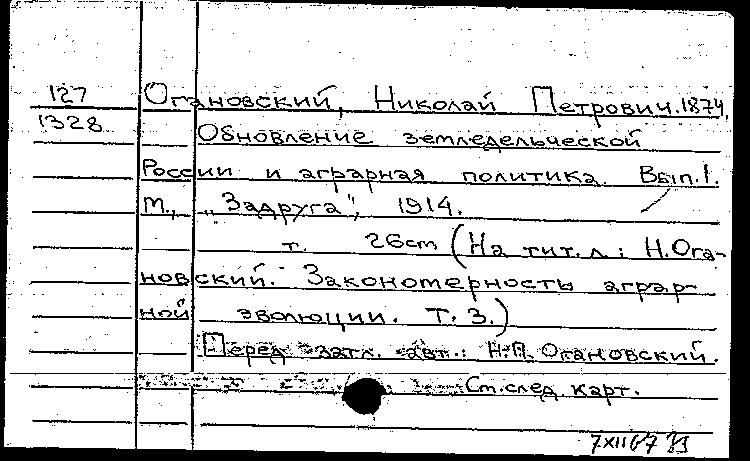 127 Огановский, Николай Петрович. 1874,
1328 Обновление земледельческой
России и аграрная политика. Вып. I.
М., „Задруга“, 1914.
т. 26см (На тит. л.: Н. Ога-
новский. Закономерность аграр-
ной эволюции. Т. 3.)
Перед загл. авт.: Н.П. Огановский.
См. след. карт.
7 XII 67